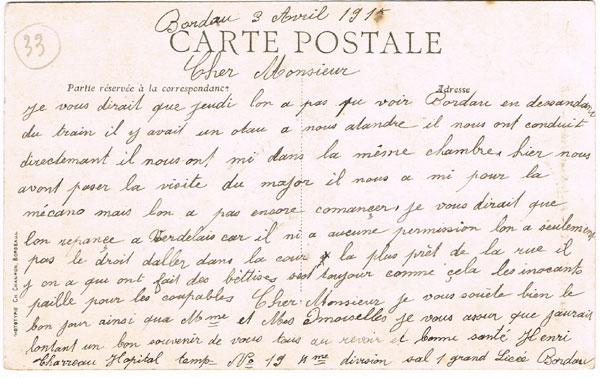 33
Bordau 3 Avril 1915
CARTE POSTALE
Cher Monsieur
Partie réservée à la correspondance
Adresse
je vous dirait que jeudi lon a pas pu voir Bordau en dessandant
du train il y avait un otau a nous atandre il nous ont conduit
directemant il nous ont mi dans la même chambre, hier nous
avont paser la visite du major il nous a mi pour la
mécano mais lon a pas encore comancer, je vous dirait que
lon repance a Verdelais car il ni a aucune permission lon a seulement
pas le droit daller dans la cour la plus prêt de la rue il
y on a qui ont fait des bêttises sest toujour comme çela les inocants
paille pour les coupables Cher Monsieur je vous souète bien le
bon jour ainsi qua Mme et Mes Dmoiselles je vous asser que jaurait
lontant un bon souvenir de vous tous au revoir et bonne santé Henri
Charreau Hopital temp. No 19 4me division sal 1 grand Licée Bordau
PHOTOTYPIE CH. CHAMBON, BORDEAUX